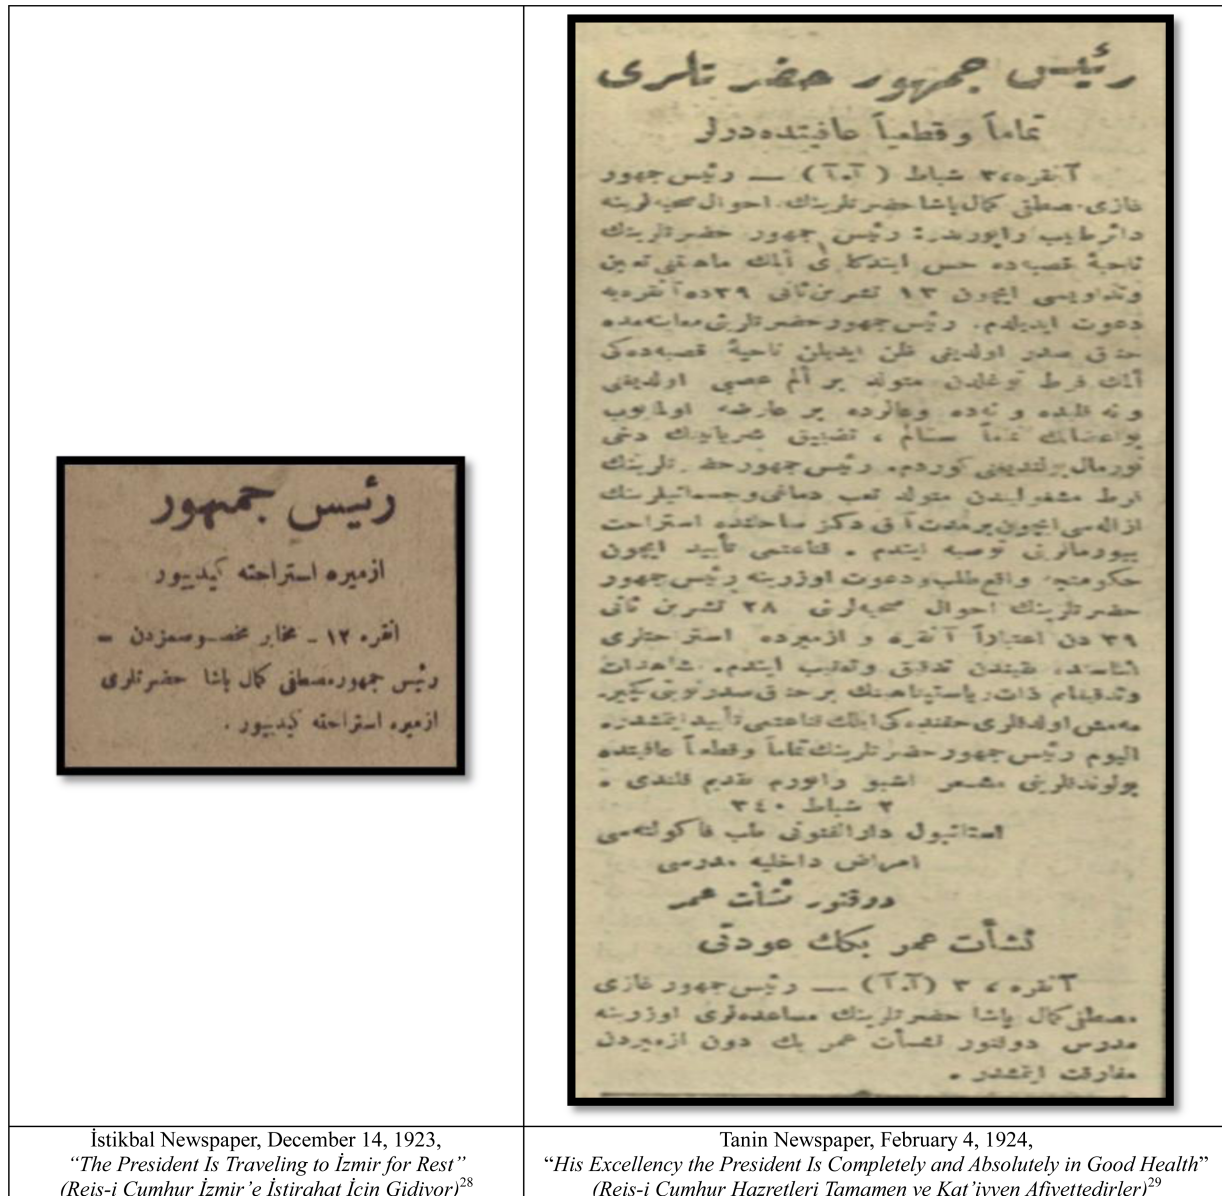 رئیس جمهور
ازمیره استراحته کیدییور
انقره ۱۲ ـ مخابر مخصوصمزدن ـ
رئیس جمهور مصطفی کمال پاشا حضرتلری
ازمیره استراحته کیدییور .
رئیس جمهور حضرتلری
تماماً و قطعیاً عافیتده درلر
آنقره، ۳ شباط ( آ.آ ) — رئیس جمهور
غازی مصطفی کمال پاشا حضرتلرینك احوال صحیه لرینه
دائر طبیب راپوریدر : رئیس جمهور حضرتلرینك
ناحیهٔ قصبه ده حس ایتدکلری ألمك ماهیتنی تعیین
وتداویسی ایچون ۱۳ تشرین ثانی ۳۹ ده آنقره یه
دعوت ایدیلدم . رئیس جمهور حضرتلرینی معاینه مده
صدر اولدیغی ظن ایدیلن ناحیهٔ قصبه ده کی
ألمك فرط توغلدن متولد بر ألم عصبی اولدیغنی
و نه قلبده و نه ده وعالرده بر عارضه اولمایوب
بو اعضانك تماماً سالم ، تضییق شریانینك دخی
نورمال بولندیغنی کوردم . رئیس جمهور حضرتلرینك
فرط مشغولیتدن متولد تعب دماغی وجسمانیلرینك
ازاله سی ایچون بر مدت دکز ساحلنده استراحت
بیورمالرینی توصیه ایتدم . قناعتمی تأیید ایچون
حکومتجه واقع طلب ودعوت اوزرینه رئیس جمهور
حضرتلرینك احوال صحیه لرینی ۲۸ تشرین ثانی
۳۹ دن اعتباراً آنقره و ازمیرده استراحتلری
اثناسنده یقیندن تدقیق وتعقیب ایتدم . مشاهدات
وتدقیقاتم ذات ریاستپناهینك بر صدر نوبتی کچیر‌
مه مش اولدقلری حقنده کی ایلك قناعتمی تأیید ایتمشدر .
الیوم رئیس جمهور حضرتلرینك تماماً و قطعیاً عافیتده
بولوندقلرینی مشعر اشبو راپورم تقدیم قلندی .
۲ شباط ۳٤۰
استانبول دارالفنونی طب فاکولته سی
امراض داخلیه مدرسی
دوقتور نشأت عمر
نشأت عمر بكك عودتی
آنقره ، ۳ (آ.آ) — رئیس جمهور غازی
مصطفی کمال پاشا حضرتلرینك مساعده لری اوزرینه
مدرس دوقتور نشأت عمر بك دون ازمیردن
مفارقت ایتمشدر .
İstikbal Newspaper, December 14, 1923,
“The President Is Traveling to İzmir for Rest”
(Reis-i Cumhur İzmir’e İstirahat İçin Gidiyor)28
Tanin Newspaper, February 4, 1924,
“His Excellency the President Is Completely and Absolutely in Good Health”
(Reis-i Cumhur Hazretleri Tamamen ve Kat’iyyen Afiyettedirler)29